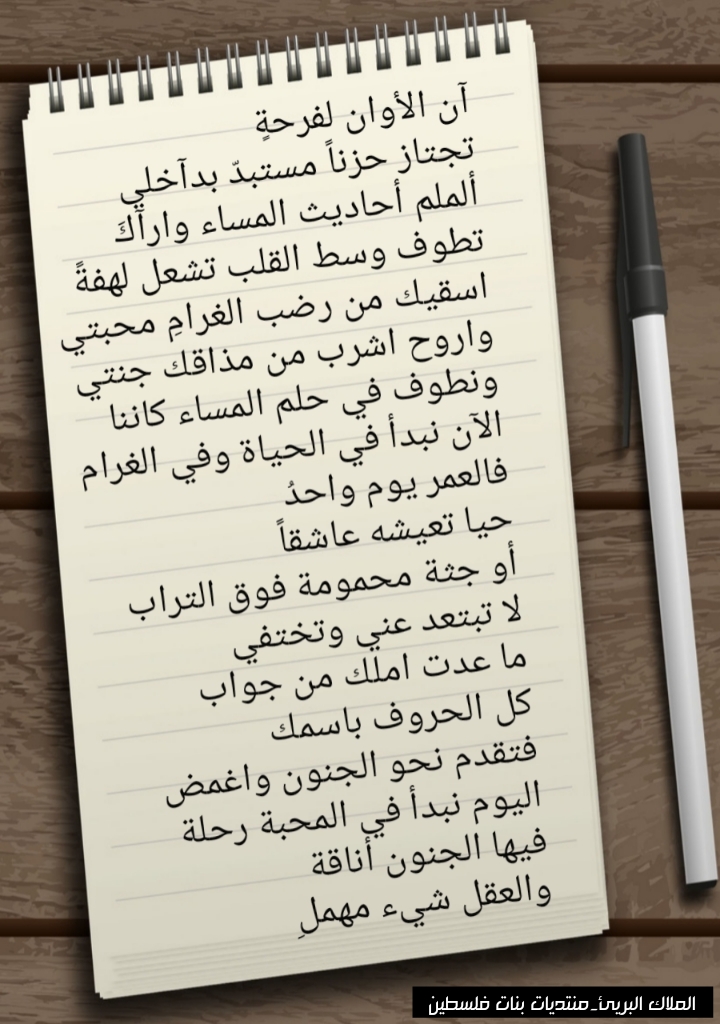 آن الأوان لفرحةٍ
تجتاز حزناً مستبدّ بدآخلي
ألملم أحاديث المساء وارآكَ
تطوف وسط القلب تشعل لهفةً
اسقيك من رضب الغرامِ محبتي
واروح اشرب من مذاقك جنتي
ونطوف في حلم المساء كاننا
الآن نبدأ في الحياة وفي الغرام
فالعمر يوم واحدُ
حيا تعيشه عاشقاً
أو جثة محمومة فوق التراب
لا تبتعد عني وتختفي
ما عدت املك من جواب
كل الحروف باسمك
فتقدم نحو الجنون واغمض
اليوم نبدأ في المحبة رحلة
فيها الجنون أناقة
والعقل شيء مهملِ
الملاك البريئ_منتديات بنات فلسطين